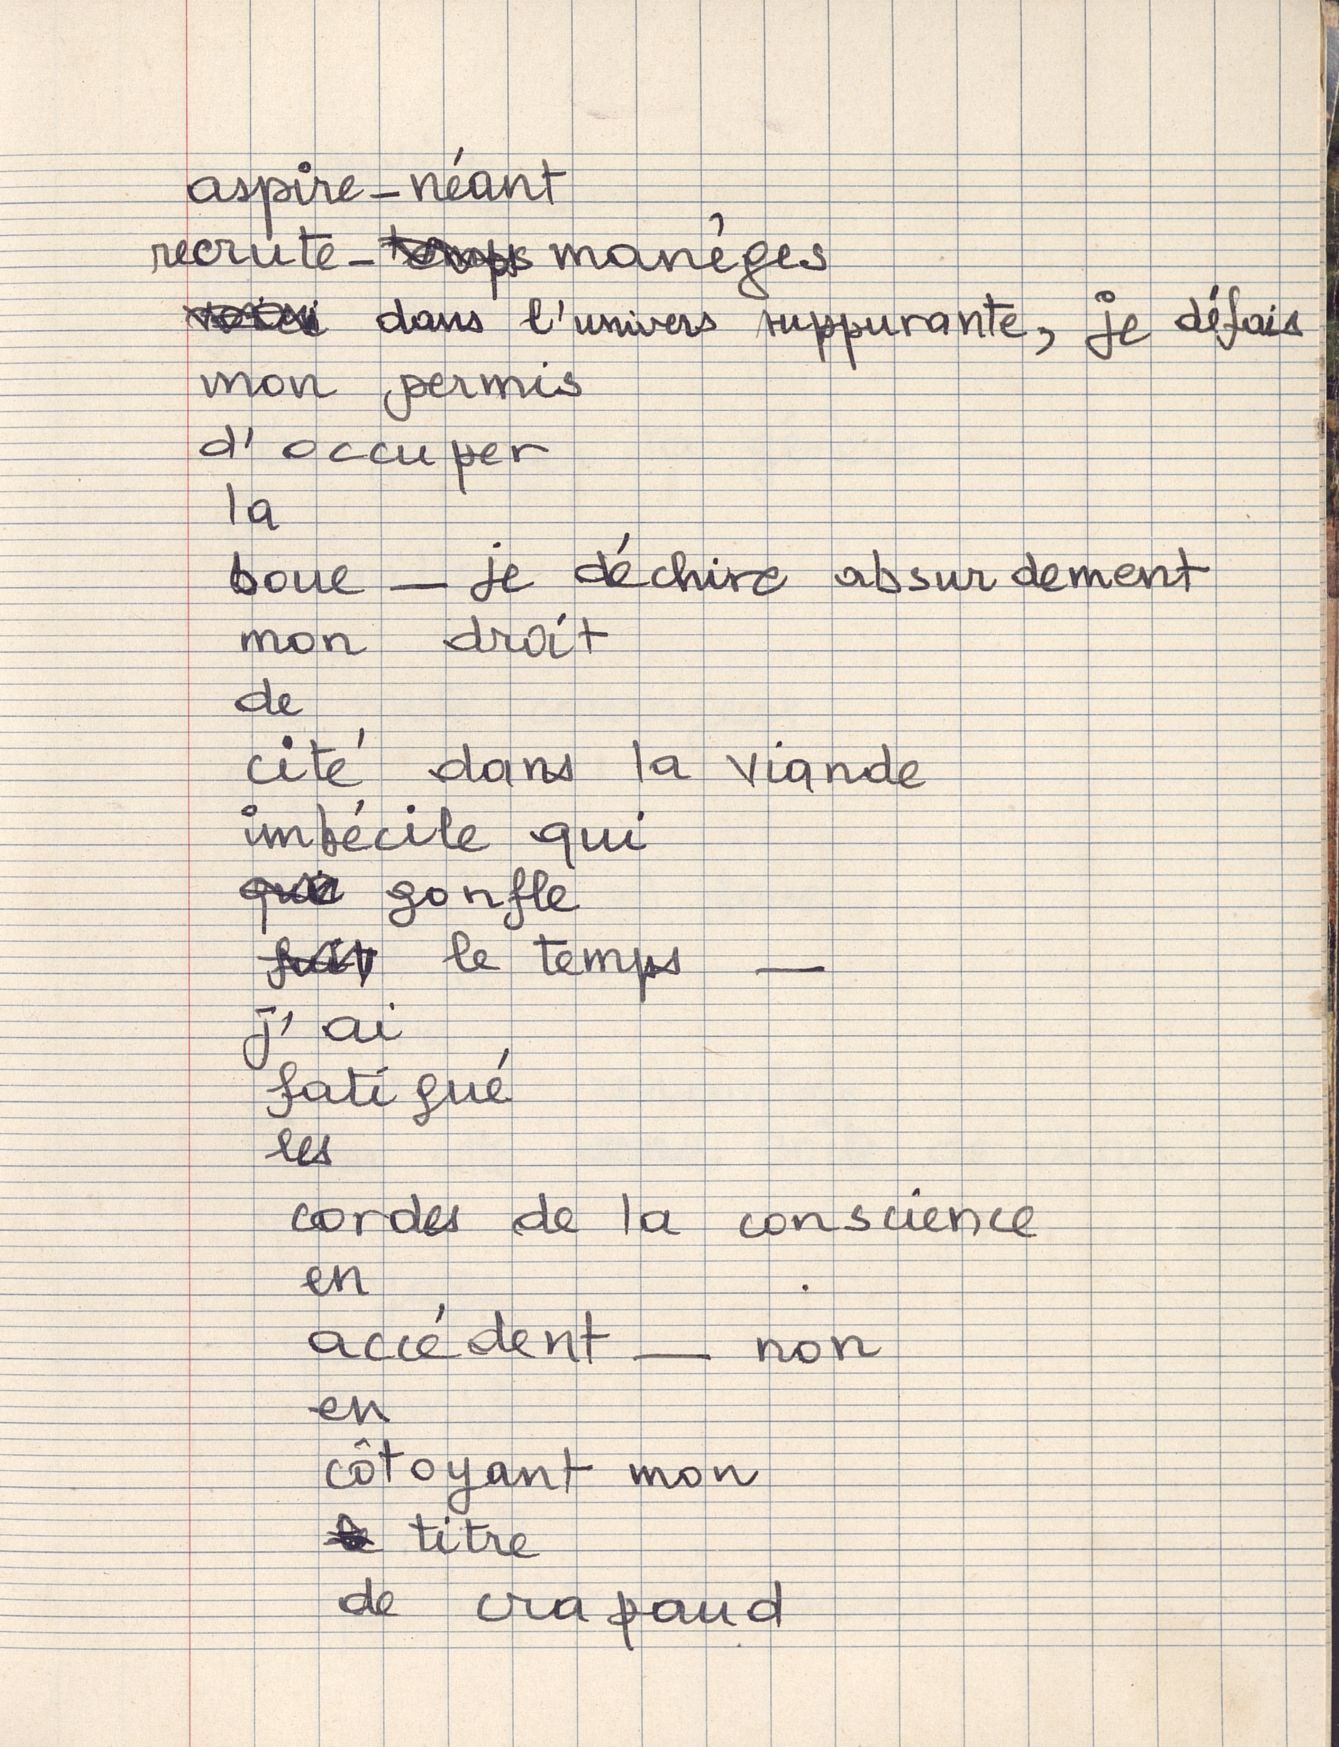 aspire-néant
recrute- manèges
dans l'univers suppurante, je défais
mon permis
d'occuper
la
boue — je déchire absurdement
mon droit
de
cité dans la viande
imbécile qui
gonfle
le temps —
j'ai
fatigué
les
cordes de la conscience
en
accédent — non
en
côtoyant mon
titre
de crapaud